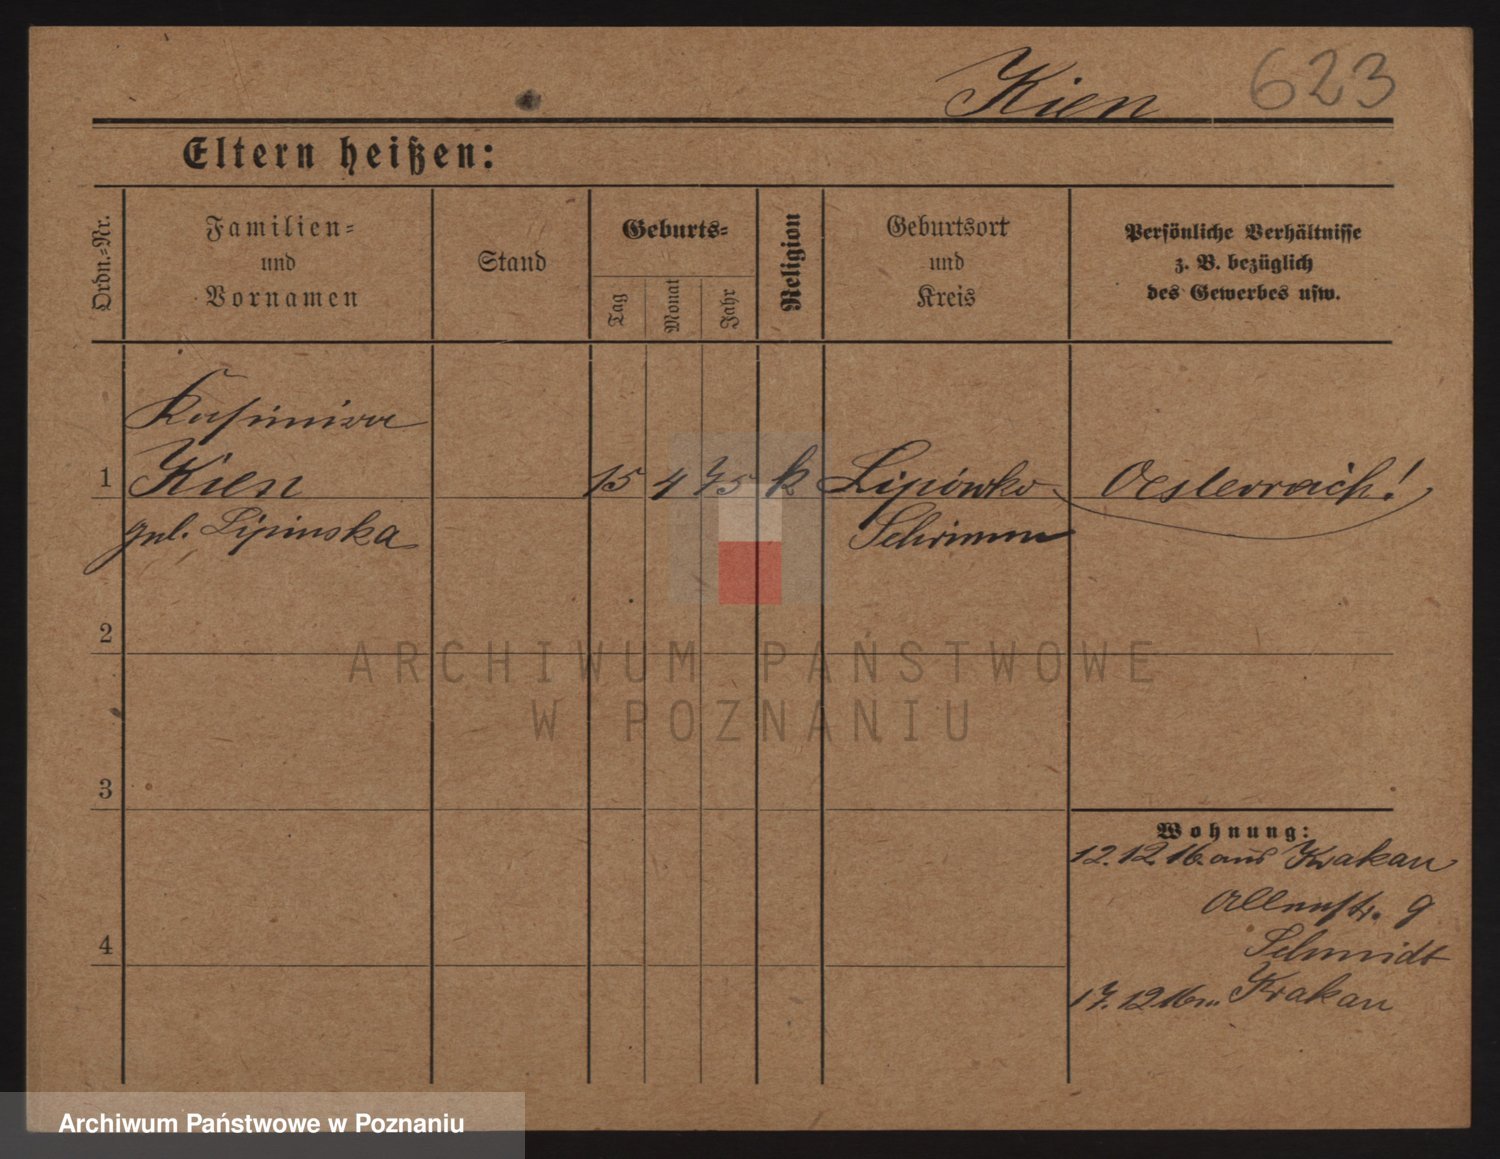 Kien 623
Eltern heißen:
Ordn.-Nr.
Familien-
und
Vornamen
Stand
Geburts-
Tag
Monat
Jahr
Religion
Geburtsort
und
Kreis
Persönliche Verhältnisse
z. B. bezüglich
des Gewerbes usw.
Kasimira
1 Kien 15 4 75 k Lipówko Oesterreich!
gb. Lipinska Schrimm
2
ARCHIWUM PAŃSTWOWE
W POZNANIU
3
Wohnung:
12.12.16. aus Krakau
9
Schmidt
4
17.12.16 n. Krakau
Archiwum Państwowe w Poznaniu